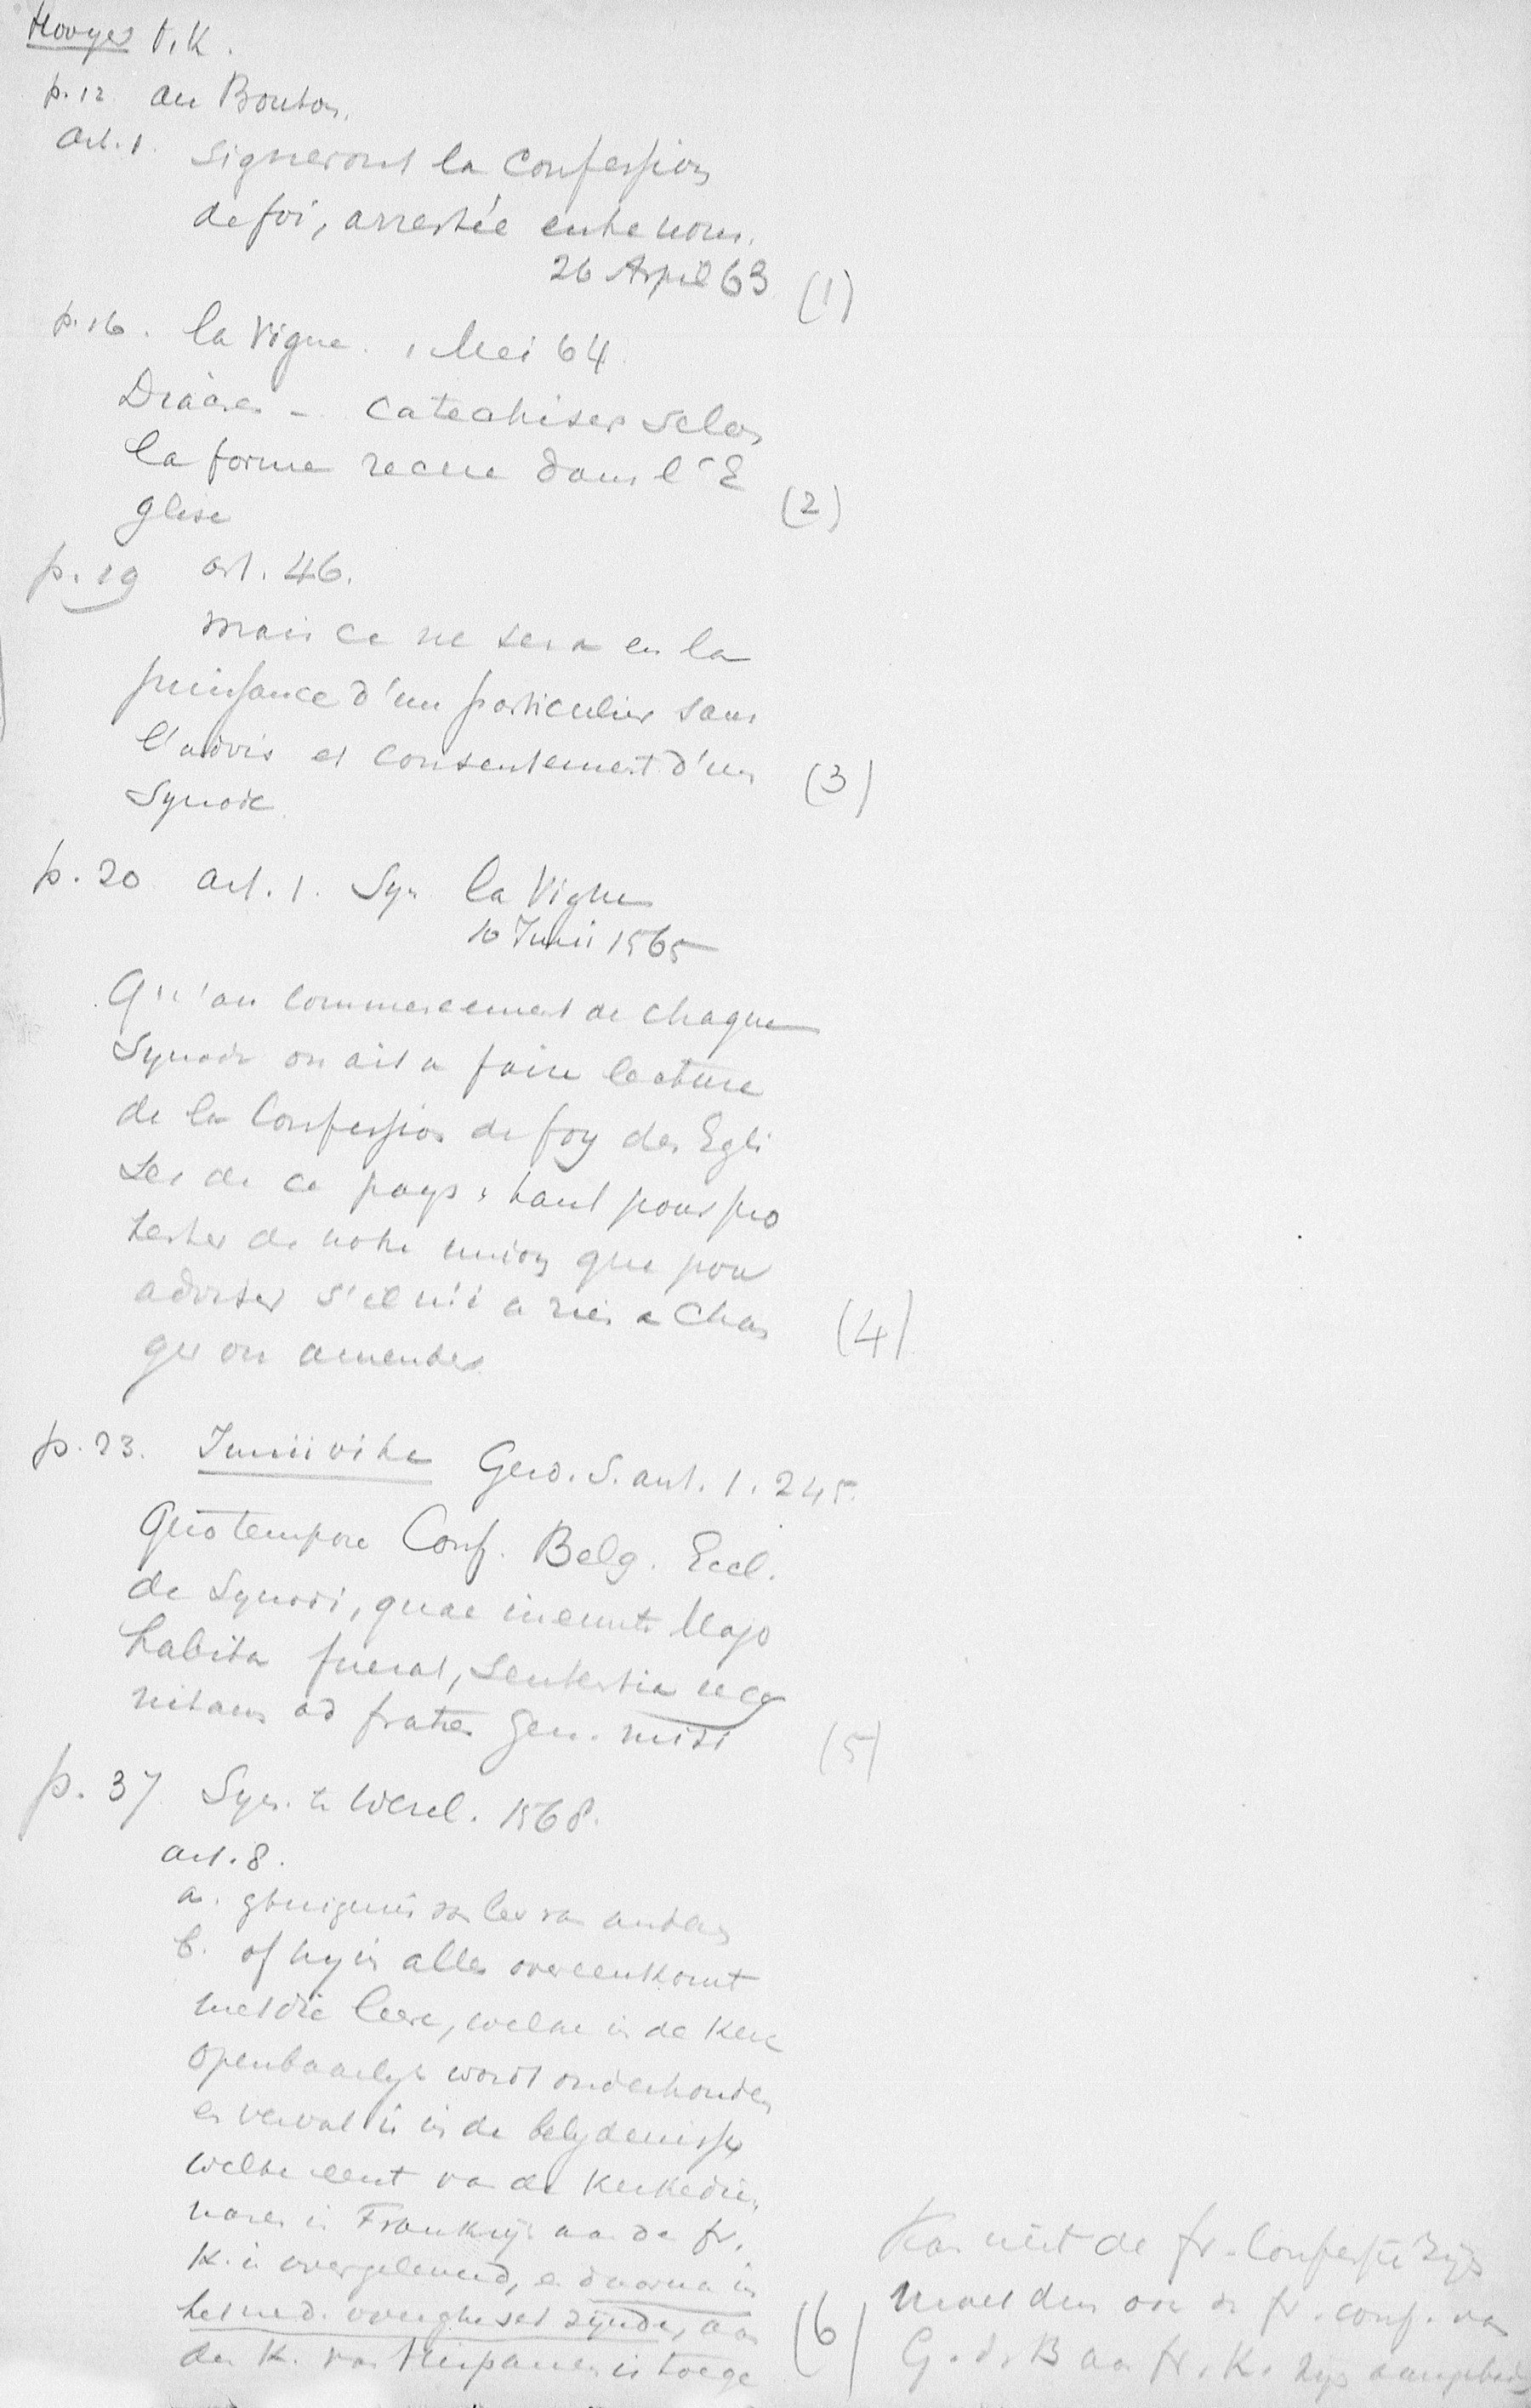 Hooyer V.K.
p. 12 au Bouton.
Art. 1. signeront la Confession
de foi, arrestée entre nous.
26 April 63 (1)
p. 16. la Vigne. 1 Mei 64
Diacres - catechiser selon
la forme recue dans l'E
glise (2)
p. 19 art. 46.
mais ce ne sera en la
puissance d'un particulier sans
l'advis et consentement d'un (3)
Synode.
p. 20 art. 1. Syn la Vigne
10 Junii 1565
Qu'au commencement de chaque
Synode on ait a faire lecture
de la Confession de foy des Egli
ses de ce pays, tant pour pro
tester de notre union que pour
adviser s'il n'i a rien a chan (4)
ger ou amender
p. 23. Junii vita Gerd. S. ant. 1. 245.
Quo tempore Conf. Belg. Eccl.
de Synodi, quae ineunte Majo
habita fuerat, sententia recog
nitam ad fratres Gen. misi (5)
p. 37 Syn. te Wesel. 1568.
art. 8.
a. van
b. of hy in alles overeenkomt
met die leere, welke in de Kerk
openbaarlyk wordt onderhouden
en vervat is in de belydenisse
welke eerst van de Kerkedie
naren in Frankrijk aan de fr.
K. is overgeleverd, en daarna in
het ned. overgheset zijnde, aan (6)
den K. van Hispanien is toege
Kan niet de fr. Confessie zijn
moet dus ook de fr. conf. van
G. d. B aan fr. K. zijn aangeboden